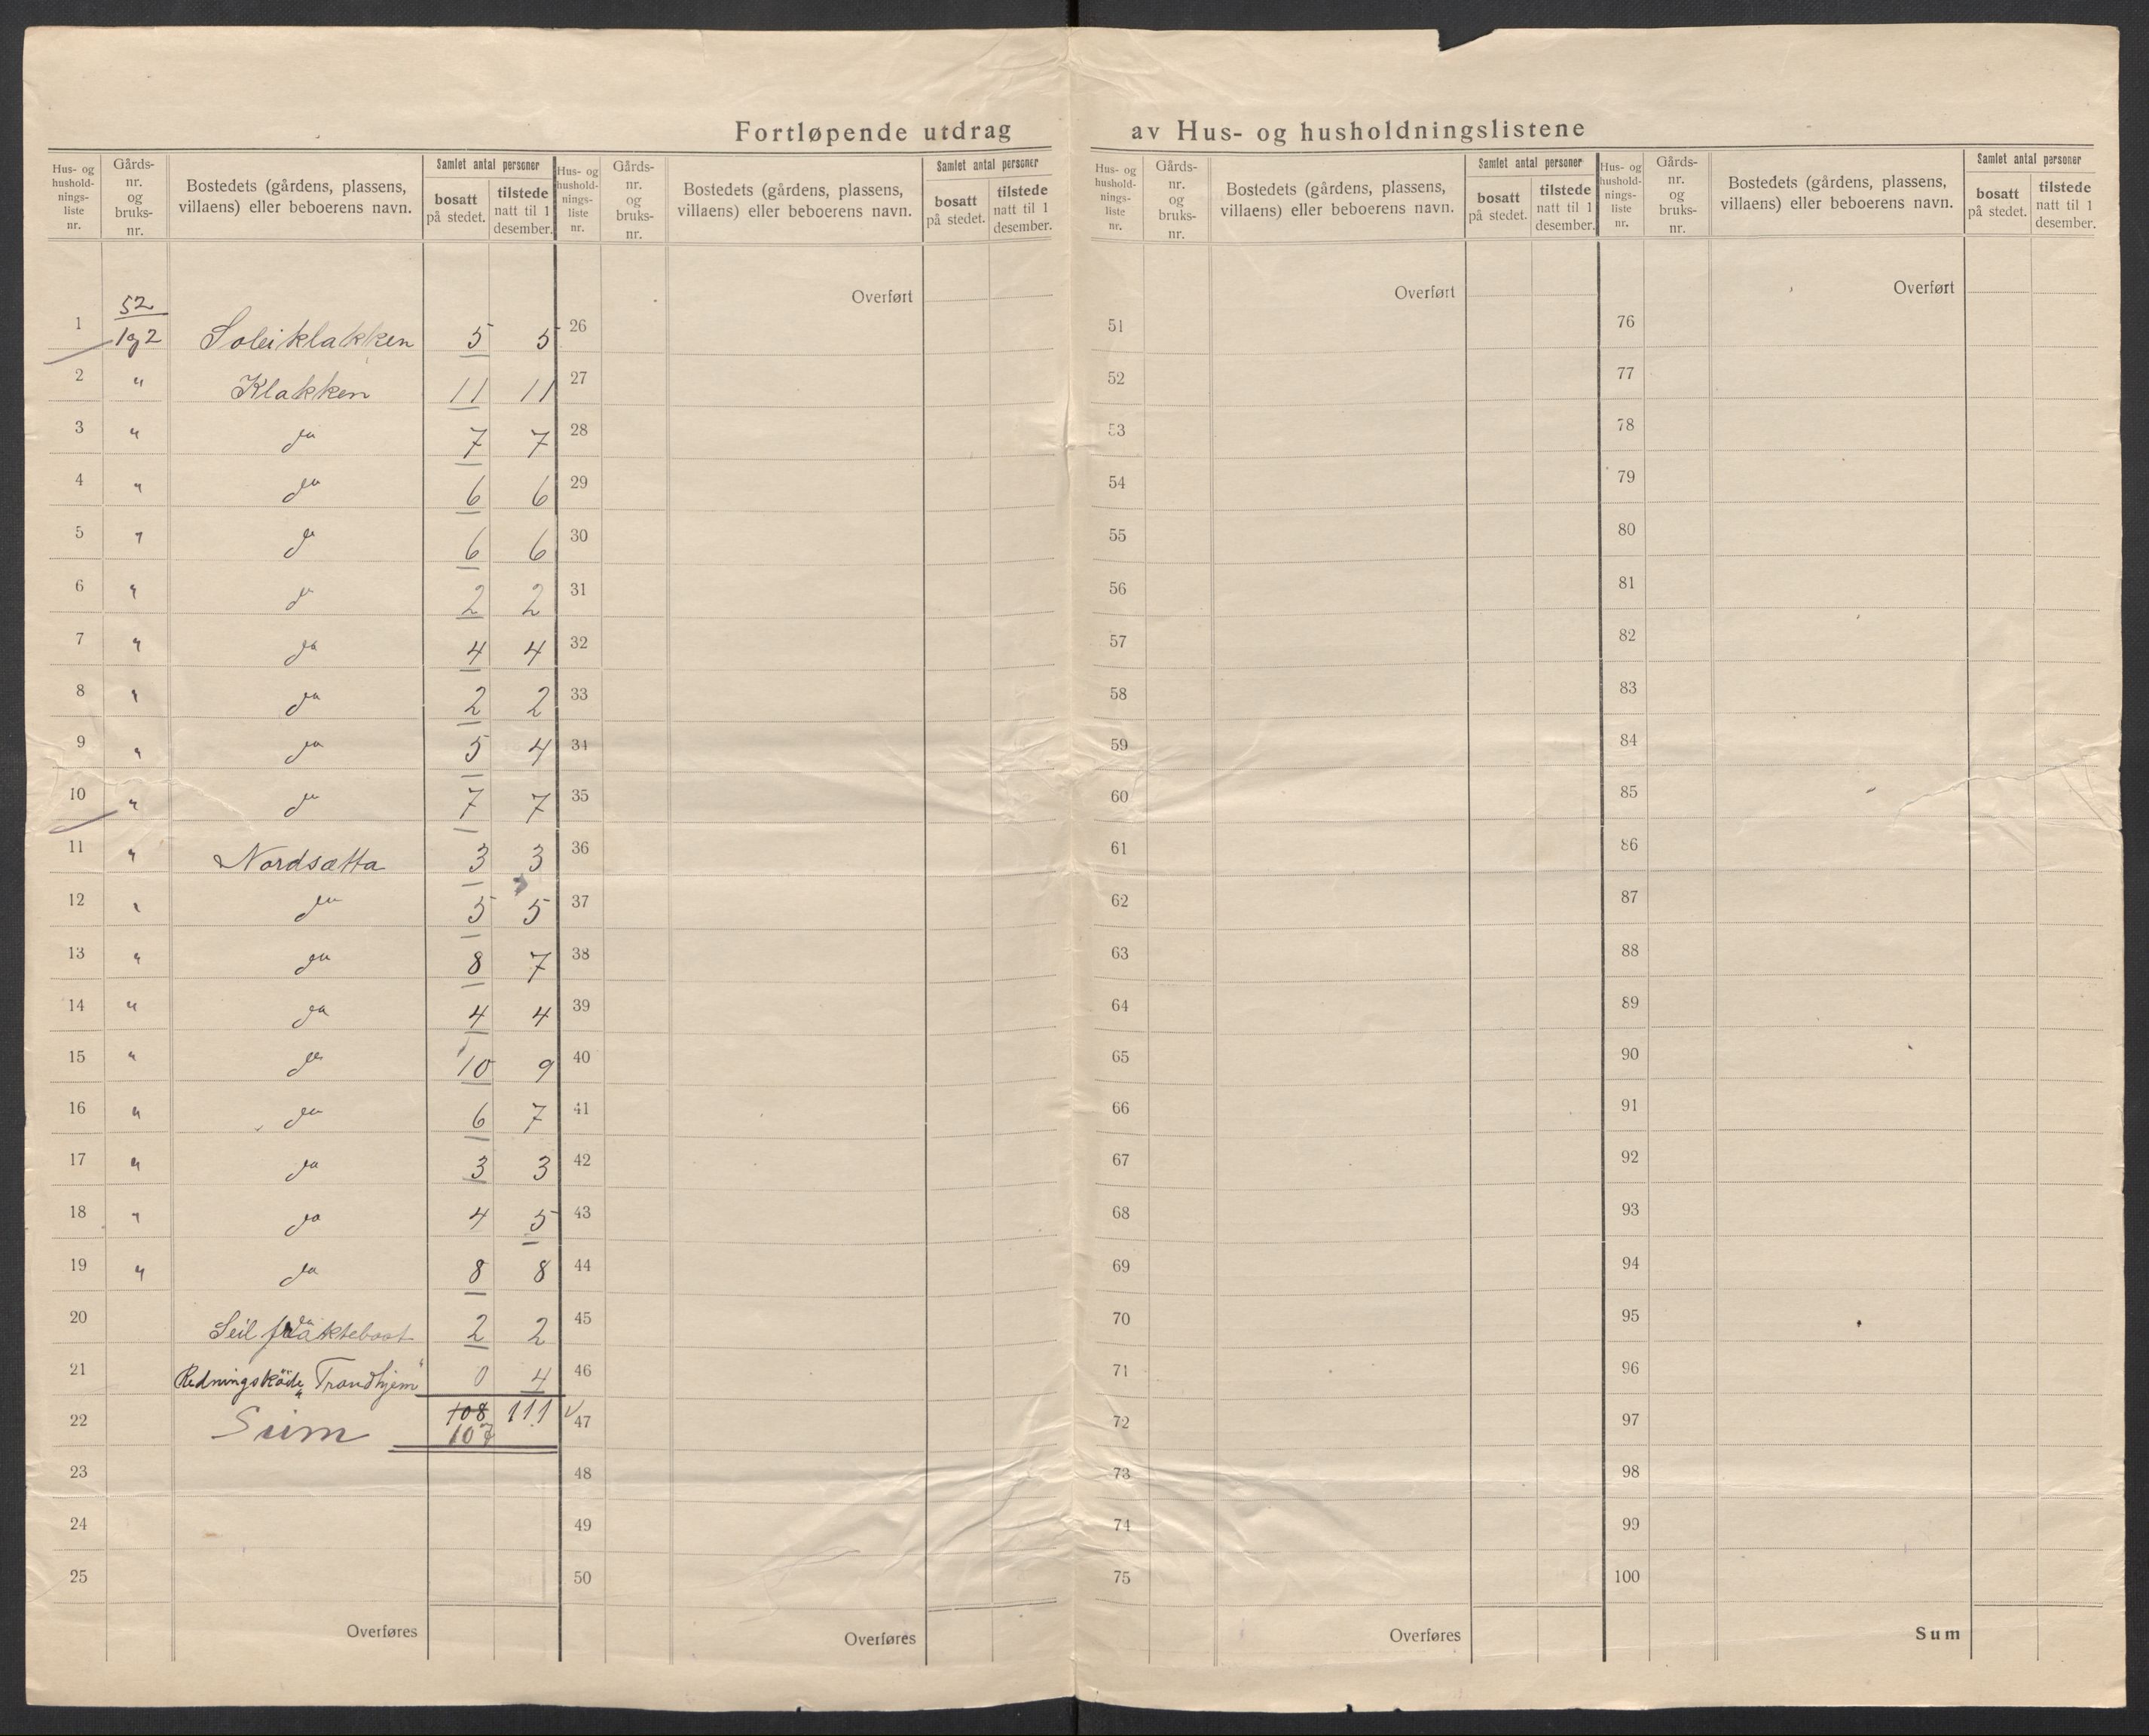 Fortløpende utdrag av Hus- og husholdningslistene
Hus- og hushold- nings- liste nr. | Gårds- nr. og bruks- nr. | Bostedets (gårdens, plassens, villaens) eller beboerens navn. | Samlet antal personer | bosatt på stedet. | tilstede natt til 1 desember.
Hus- og hushold- nings- liste nr. | Gårds- nr. og bruks- nr. | Bostedets (gårdens, plassens, villaens) eller beboerens navn. | Samlet antal personer | bosatt på stedet. | tilstede natt til 1 desember.
Hus- og hushold- nings- liste nr. | Gårds- nr. og bruks- nr. | Bostedets (gårdens, plassens, villaens) eller beboerens navn. | Samlet antal personer | bosatt på stedet. | tilstede natt til 1 desember.
Hus- og hushold- nings- liste nr. | Gårds- nr. og bruks- nr. | Bostedets (gårdens, plassens, villaens) eller beboerens navn. | Samlet antal personer | bosatt på stedet. | tilstede natt til 1 desember.
Overført Overført Overført
52
1 1og2 Soleiklakken 5 5 26 51 76
2 " Klakken 11 11 27 52 77
3 " do 7 7 28 53 78
4 " do 6 6 29 54 79
5 " do 6 6 30 55 80
6 " do 2 2 31 56 81
7 " do 4 4 32 57 82
8 " do 2 2 33 58 83
9 " do 5 4 34 59 84
10 " do 7 7 35 60 85
11 " Nordsætta 3 3 36 61 86
12 " do 5 5 37 62 87
13 " do 8 7 38 63 88
14 " do 4 4 39 64 89
15 " do 10 9 40 65 90
16 " do 6 7 41 66 91
17 " do 3 3 42 67 92
18 " do 4 5 43 68 93
19 " do 8 8 44 69 94
20 Seil 2 2 45 70 95
21 Redningsköite „Trondhjem" 0 4 46 71 96
22 Sum 108 111 47 72 97
107
23 48 73 98
24 49 74 99
25 50 75 100
Overføres Overføres Overføres Sum